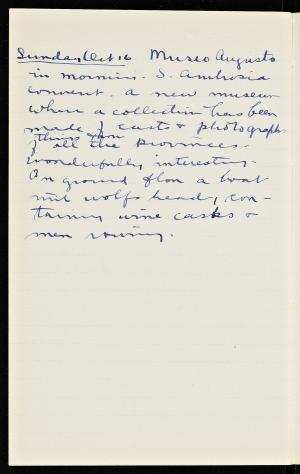 Sunday, Oct 16 Museo Augusto
in morning. S. Ambrosia
convent. a new museum
where a collection has been
made of casts & photographs
things from
of all the provinces.
wonderfully interesting.
On ground floor a boat
with wolf's head, con-
taining wine casks &
men rowing.